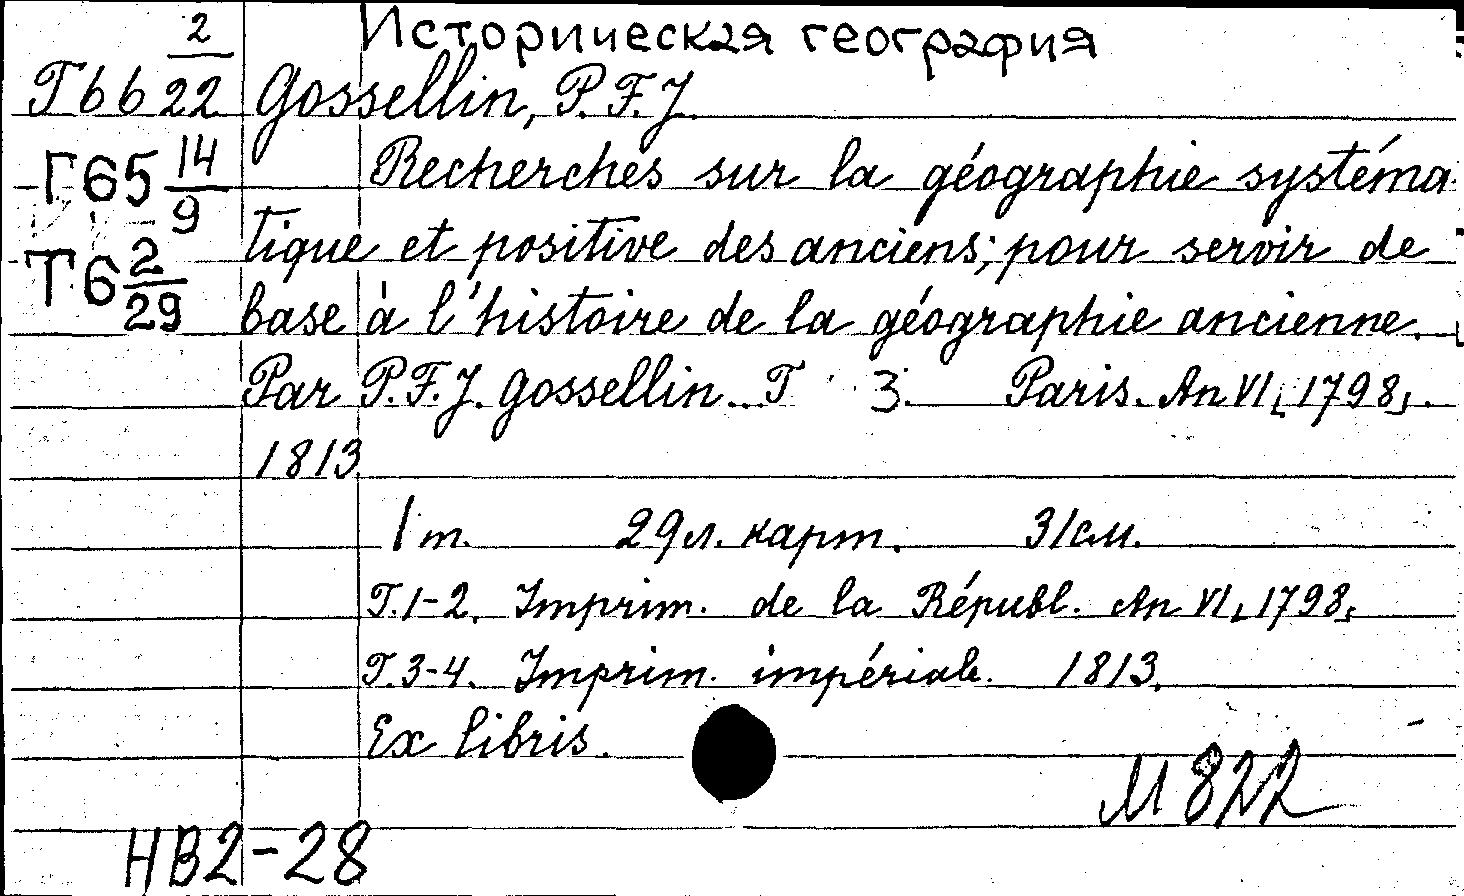 Историческая география
Т66 2/22 Gossellin, P. F. J.
Г65 14/9 Recherches sur la géographie systéma
tique et positive des anciens; pour servir de
Т6 2/29 base à l'histoire de la géographie ancienne.
Par P. F. J. Gossellin. T 3. Paris. An VI, [1798].
1813
1 т. 29 л. карт. 31 см.
T. 1-2. Imprim. de la Républ. An VI, [1798].
T. 3-4. Imprim. impériale. 1813.
Ex libris.
М 822
НВ2-28